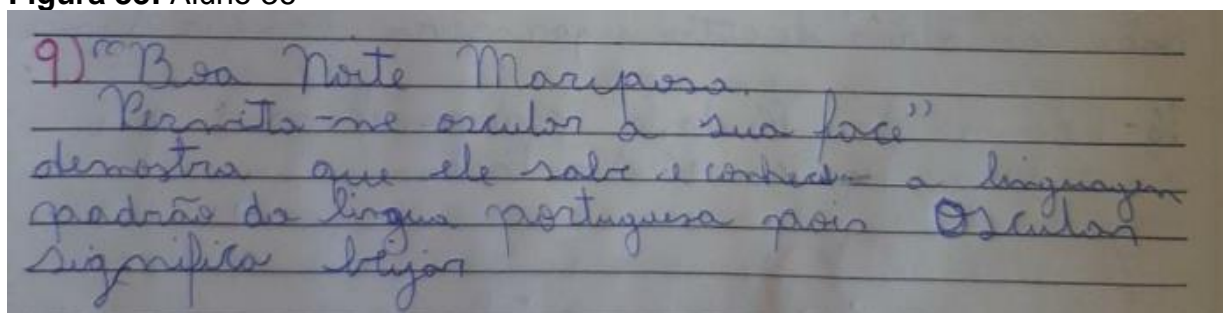 9) "Boa Noite Mariposa.
Permita-me oscular a sua face"
demostra que ele sabe e conhece a linguagem
padrão da lingua portuguesa pois Oscular
significa beijar